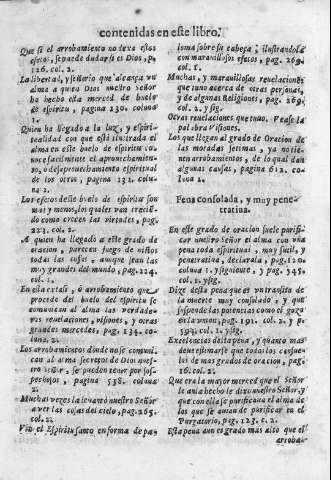 contenidas en este libro.
Que si el arrobamiento no dexa estos
efetos, se puede dudar si es Dios, p.
126. col. 2.
La libertad, y señorio que alcança vn
alma a quien Dios nuestro señor
ha hecho esta merced de buelo
de espiritu, pagina 230. coluna
1.
Quien ha llegado a la luz, y espiri-
tualidad con que està ilustrada el
alma en este buelo de espiritu co-
noce facilmente el aprouechamien-
to, o desaprouechamiento espiritual
de los otros, pagina 232. colu-
na 2.
Los efetos deste buelo de espiritu son
mas y menos, los quales van crecié-
do como crecen las virtudes, pag.
223. col. 2.
A quien ha llegado a este grado de
oracion, parecen juego de niños
todas las cosas, aunque sean las
muy grandes del mundo, pag. 224.
col. 1.
En esta extasi, ò arrobamiento que
procede del buelo del espiritu se
comunican al alma las verdade-
ras reuelaciones, visiones, y otras
grandes mercedes, pag. 134. colu-
na 2.
Los arrobamientos donde no se comuni-
can al alma secretos de Dios nues-
tro señor, se pueden tener por sos-
pechosos, pagina 538. coluna
2.
Muchas vezes la leuantò nuestro Señor
a ver las cosas del cielo, pag. 265.
col. 2.
Viò el Espiritu santo en forma de pa-
loma sobre su cabeça, ilustrandola
con marauillosos efetos, pag. 269.
col. 1.
Muchas, y marauillosas reuelaciones
que tuuo acerca de otras personas,
y de algunas Religiones, pag. 269.
col. 2. y sig.
Otras reuelaciones que tuuo. Vease la
palabra Visiones.
Los que llegan al grado de Oracion de
las moradas setimas, ya no tie-
nen arrobamientos, de lo qual dan
algunas causas, pagina 612. co-
luna 2.
Pena consolada, y muy pene-
tratiua.
En este grado de oracion suele purifi-
car nuestro Señor el alma con vna
pena toda espiritual, muy sutil, y
penetratiua, declarala, pag. 120.
coluna 1. y siguiente, y pag. 545.
col. 1. y sig.
Dize desta pena que es vn transito de
la muerte muy consolado, y que
suspende las potencias como el gozo
en la vnion, pag. 191. col. 2. y p.
col. 2. y sig.
Excelencias desta pena, y quanto mas
deue estimarse que todos los consue-
los de mas grados de oracion, pag.
16. col. 2.
Que era la mayor merced que el Señor
le auia hecho le dixo nuestro Señor, y
que con ella se purificaua el alma de
los que se auian de purificar en el
Purgatorio, pag. 123. c. 2.
Esta pena aun es grado mas alto que el
arroba-